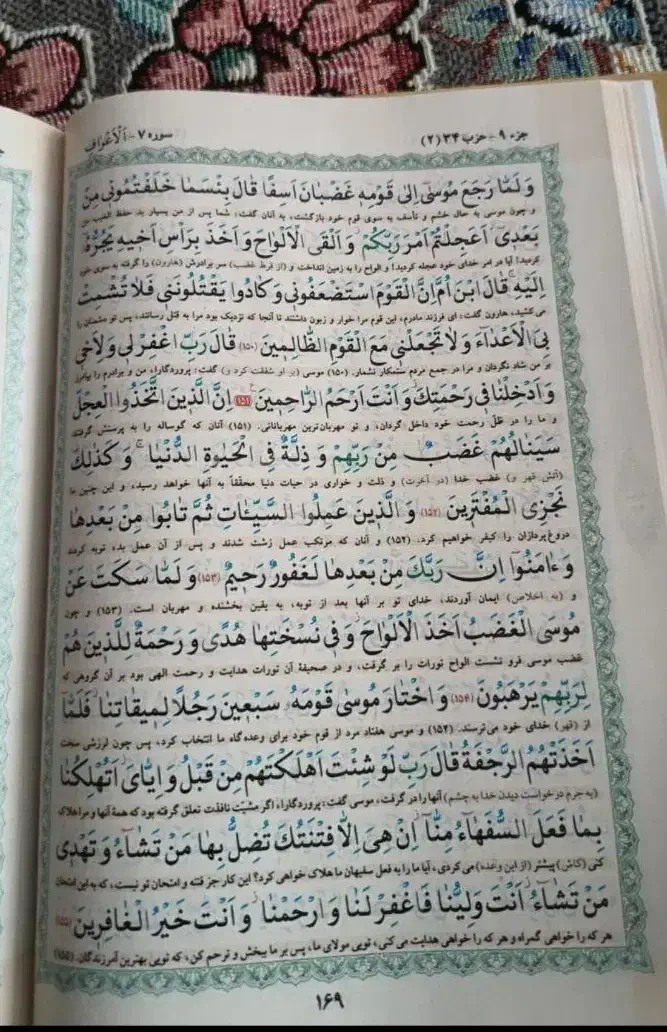 جزء ۹ - حزب ۳۴ (۲)
سوره ۷ - اَلْاَعْراف
وَ لَمّا رَجَعَ مُوسىٰٓ اِلىٰ قَوْمِهِ غَضْبانَ اَسِفًا قالَ بِئْسَما خَلَفْتُمُونى مِنْ
و چون موسی به حال خشم و تأسف به سوی قوم خود بازگشت، به آنان گفت: شما پس از من بسیار بد حفظ الغیب من
بَعْدىٓ اَعَجِلْتُمْ اَمْرَ رَبِّكُمْ وَ اَلْقَى الْاَلْواحَ وَ اَخَذَ بِرَاْسِ اَخيهِ يَجُرُّهُٓ
کردید! آیا در امر خدای خود عجله کردید! و الواح را به زمین انداخت و (از فرط غضب) سر برادرش (هارون) را گرفته به سوی خود
اِلَيْهِ قالَ ابْنَ اُمَّ اِنَّ الْقَوْمَ اسْتَضْعَفُونى وَ كادُوا يَقْتُلُونَنى فَلا تُشْمِتْ
می کشید، هارون گفت: ای فرزند مادرم، این قوم مرا خوار و زبون داشتند تا آنجا که نزدیک بود مرا به قتل رسانند، پس تو دشمنان را
بِىَ الْاَعْدآءَ وَ لا تَجْعَلْنى مَعَ الْقَوْمِ الظّالِمينَ (۱۵۰) قالَ رَبِّ اغْفِرْ لى وَ لِاَخى
بر من شاد نگردان و مرا در جمع مردم ستمکار نشمار. (۱۵۰) موسی (بر او شفقت کرد و) گفت: پروردگارا، من و برادرم را بیامرز
وَ اَدْخِلْنا فى رَحْمَتِكَ وَ اَنْتَ اَرْحَمُ الرّاحِمينَ (۱۵۱) اِنَّ الَّذينَ اتَّخَذُوا الْعِجْلَ
و ما را در ظلّ رحمت خود داخل گردان، و تو مهربان‌ترین مهربانانی. (۱۵۱) آنان که گوساله را به پرستش گرفتند
سَيَنالُهُمْ غَضَبٌ مِنْ رَبِّهِمْ وَ ذِلَّةٌ فِى الْحَيٰوةِ الدُّنْيا وَ كَذٰلِكَ
(آتش قهر و) غضب خدا (در آخرت) و ذلت و خواری در حیات دنیا محققاً به آنها خواهد رسید، و این چنین ما
نَجْزِى الْمُفْتَرينَ (۱۵۲) وَ الَّذينَ عَمِلُوا السَّيِّـٔاتِ ثُمَّ تابُوا مِنْ بَعْدِها
دروغ‌پردازان را کیفر خواهیم کرد. (۱۵۲) و آنان که مرتکب عمل زشت شدند و پس از آن عمل بد، توبه کردند
وَ ءامَنُوٓا اِنَّ رَبَّكَ مِنْ بَعْدِها لَغَفُورٌ رَحيمٌ (۱۵۳) وَ لَمّا سَكَتَ عَنْ
و (به اخلاص) ایمان آوردند، خدای تو بر آنها بعد از توبه، به یقین بخشنده و مهربان است. (۱۵۳) و چون
مُوسَى الْغَضَبُ اَخَذَ الْاَلْواحَ وَ فى نُسْخَتِها هُدًى وَ رَحْمَةٌ لِلَّذينَ هُمْ
غضب موسی فرو نشست الواح تورات را بر گرفت، و در صحیفهٔ آن تورات هدایت و رحمت الهی بود بر آن گروهی که
لِرَبِّهِمْ يَرْهَبُونَ (۱۵۴) وَ اخْتارَ مُوسىٰ قَوْمَهُ سَبْعينَ رَجُلًا لِميقاتِنا فَلَمّآ
از (قهر) خدای خود می‌ترسند. (۱۵۴) و موسی هفتاد مرد از قوم خود برای وعده‌گاه ما انتخاب کرد، پس چون لرزشی سخت
اَخَذَتْهُمُ الرَّجْفَةُ قالَ رَبِّ لَوْ شِئْتَ اَهْلَكْتَهُمْ مِنْ قَبْلُ وَ اِيّاىَ اَتُهْلِكُنا
(به جرم درخواست دیدن خدا به چشم) آنها را در گرفت، موسی گفت: پروردگارا، اگر مشیّت نافذت تعلق گرفته بود که همهٔ آنها و مرا هلاک
بِما فَعَلَ السُّفَهآءُ مِنّآ اِنْ هِىَ اِلّا فِتْنَتُكَ تُضِلُّ بِها مَنْ تَشآءُ وَ تَهْدى
کنی (کاش) پیشتر (از این وعده) می‌کردی، آیا ما را به فعل سفیهان ما هلاک خواهی کرد؟ این کار جز فتنه و امتحان تو نیست، که به این امتحان
مَنْ تَشآءُ اَنْتَ وَلِيُّنا فَاغْفِرْ لَنا وَ ارْحَمْنا وَ اَنْتَ خَيْرُ الْغافِرينَ (۱۵۵)
هر که را خواهی گمراه و هر که را خواهی هدایت می‌کنی، تویی مولای ما، پس بر ما ببخش و ترحم کن، که تویی بهترین آمرزندگان. (۱۵۵)
۱۶۹